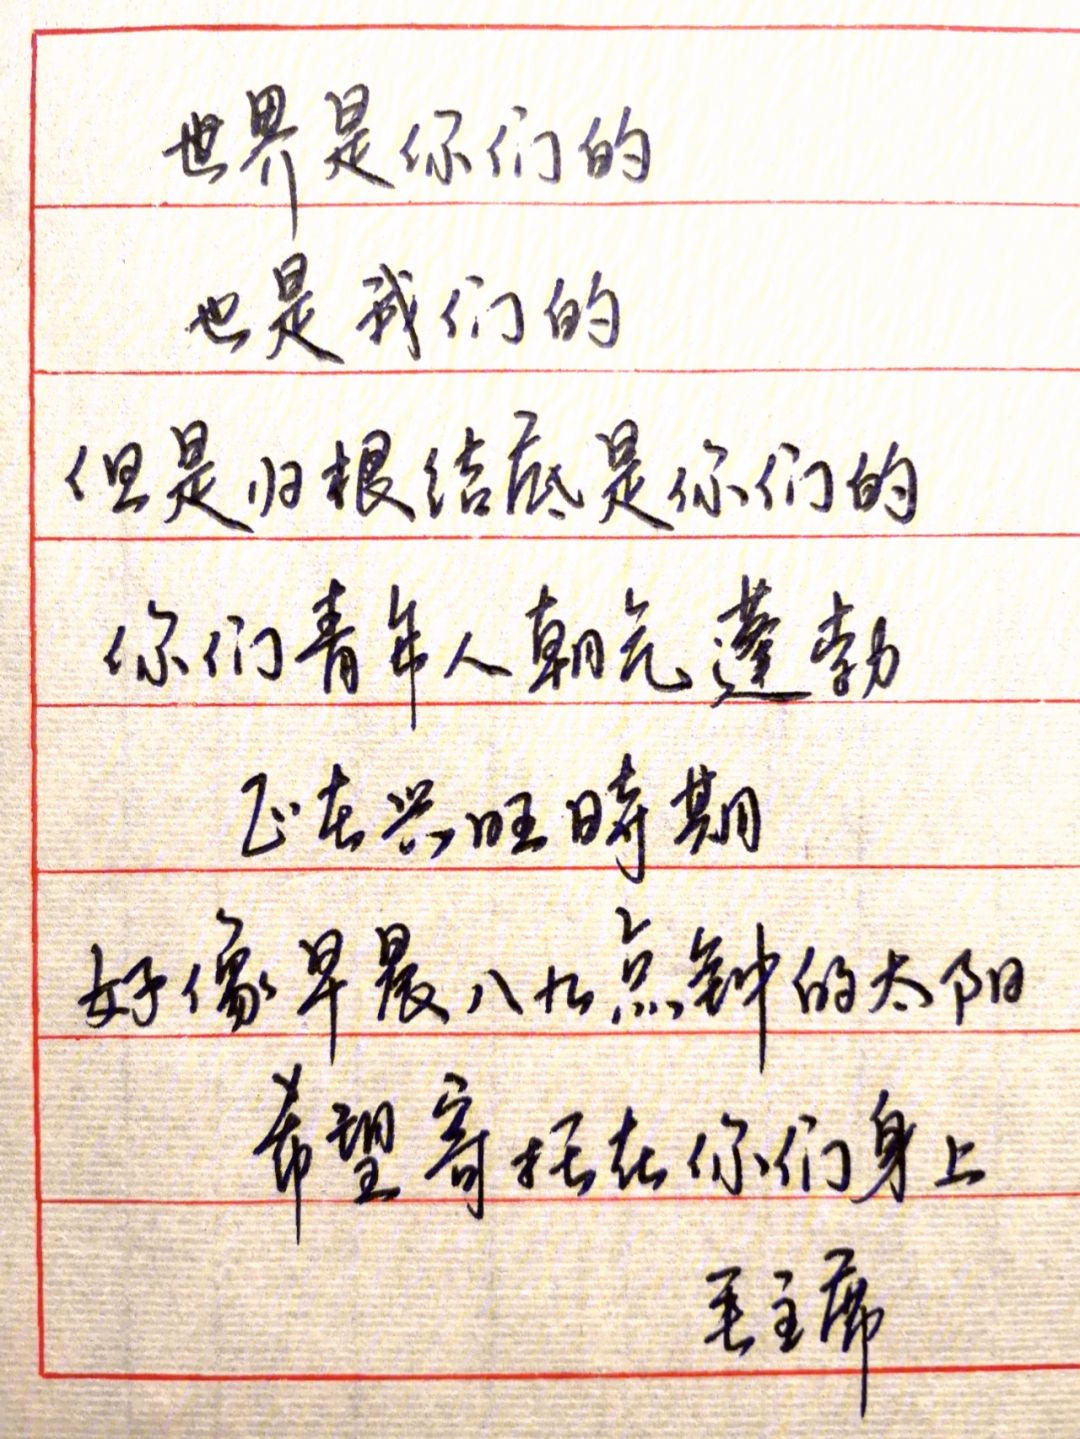 世界是你们的
也是我们的
但是归根结底是你们的
你们青年人朝气蓬勃
正在兴旺時期
好像早晨八九点钟的太阳
希望寄托在你们身上
毛主席